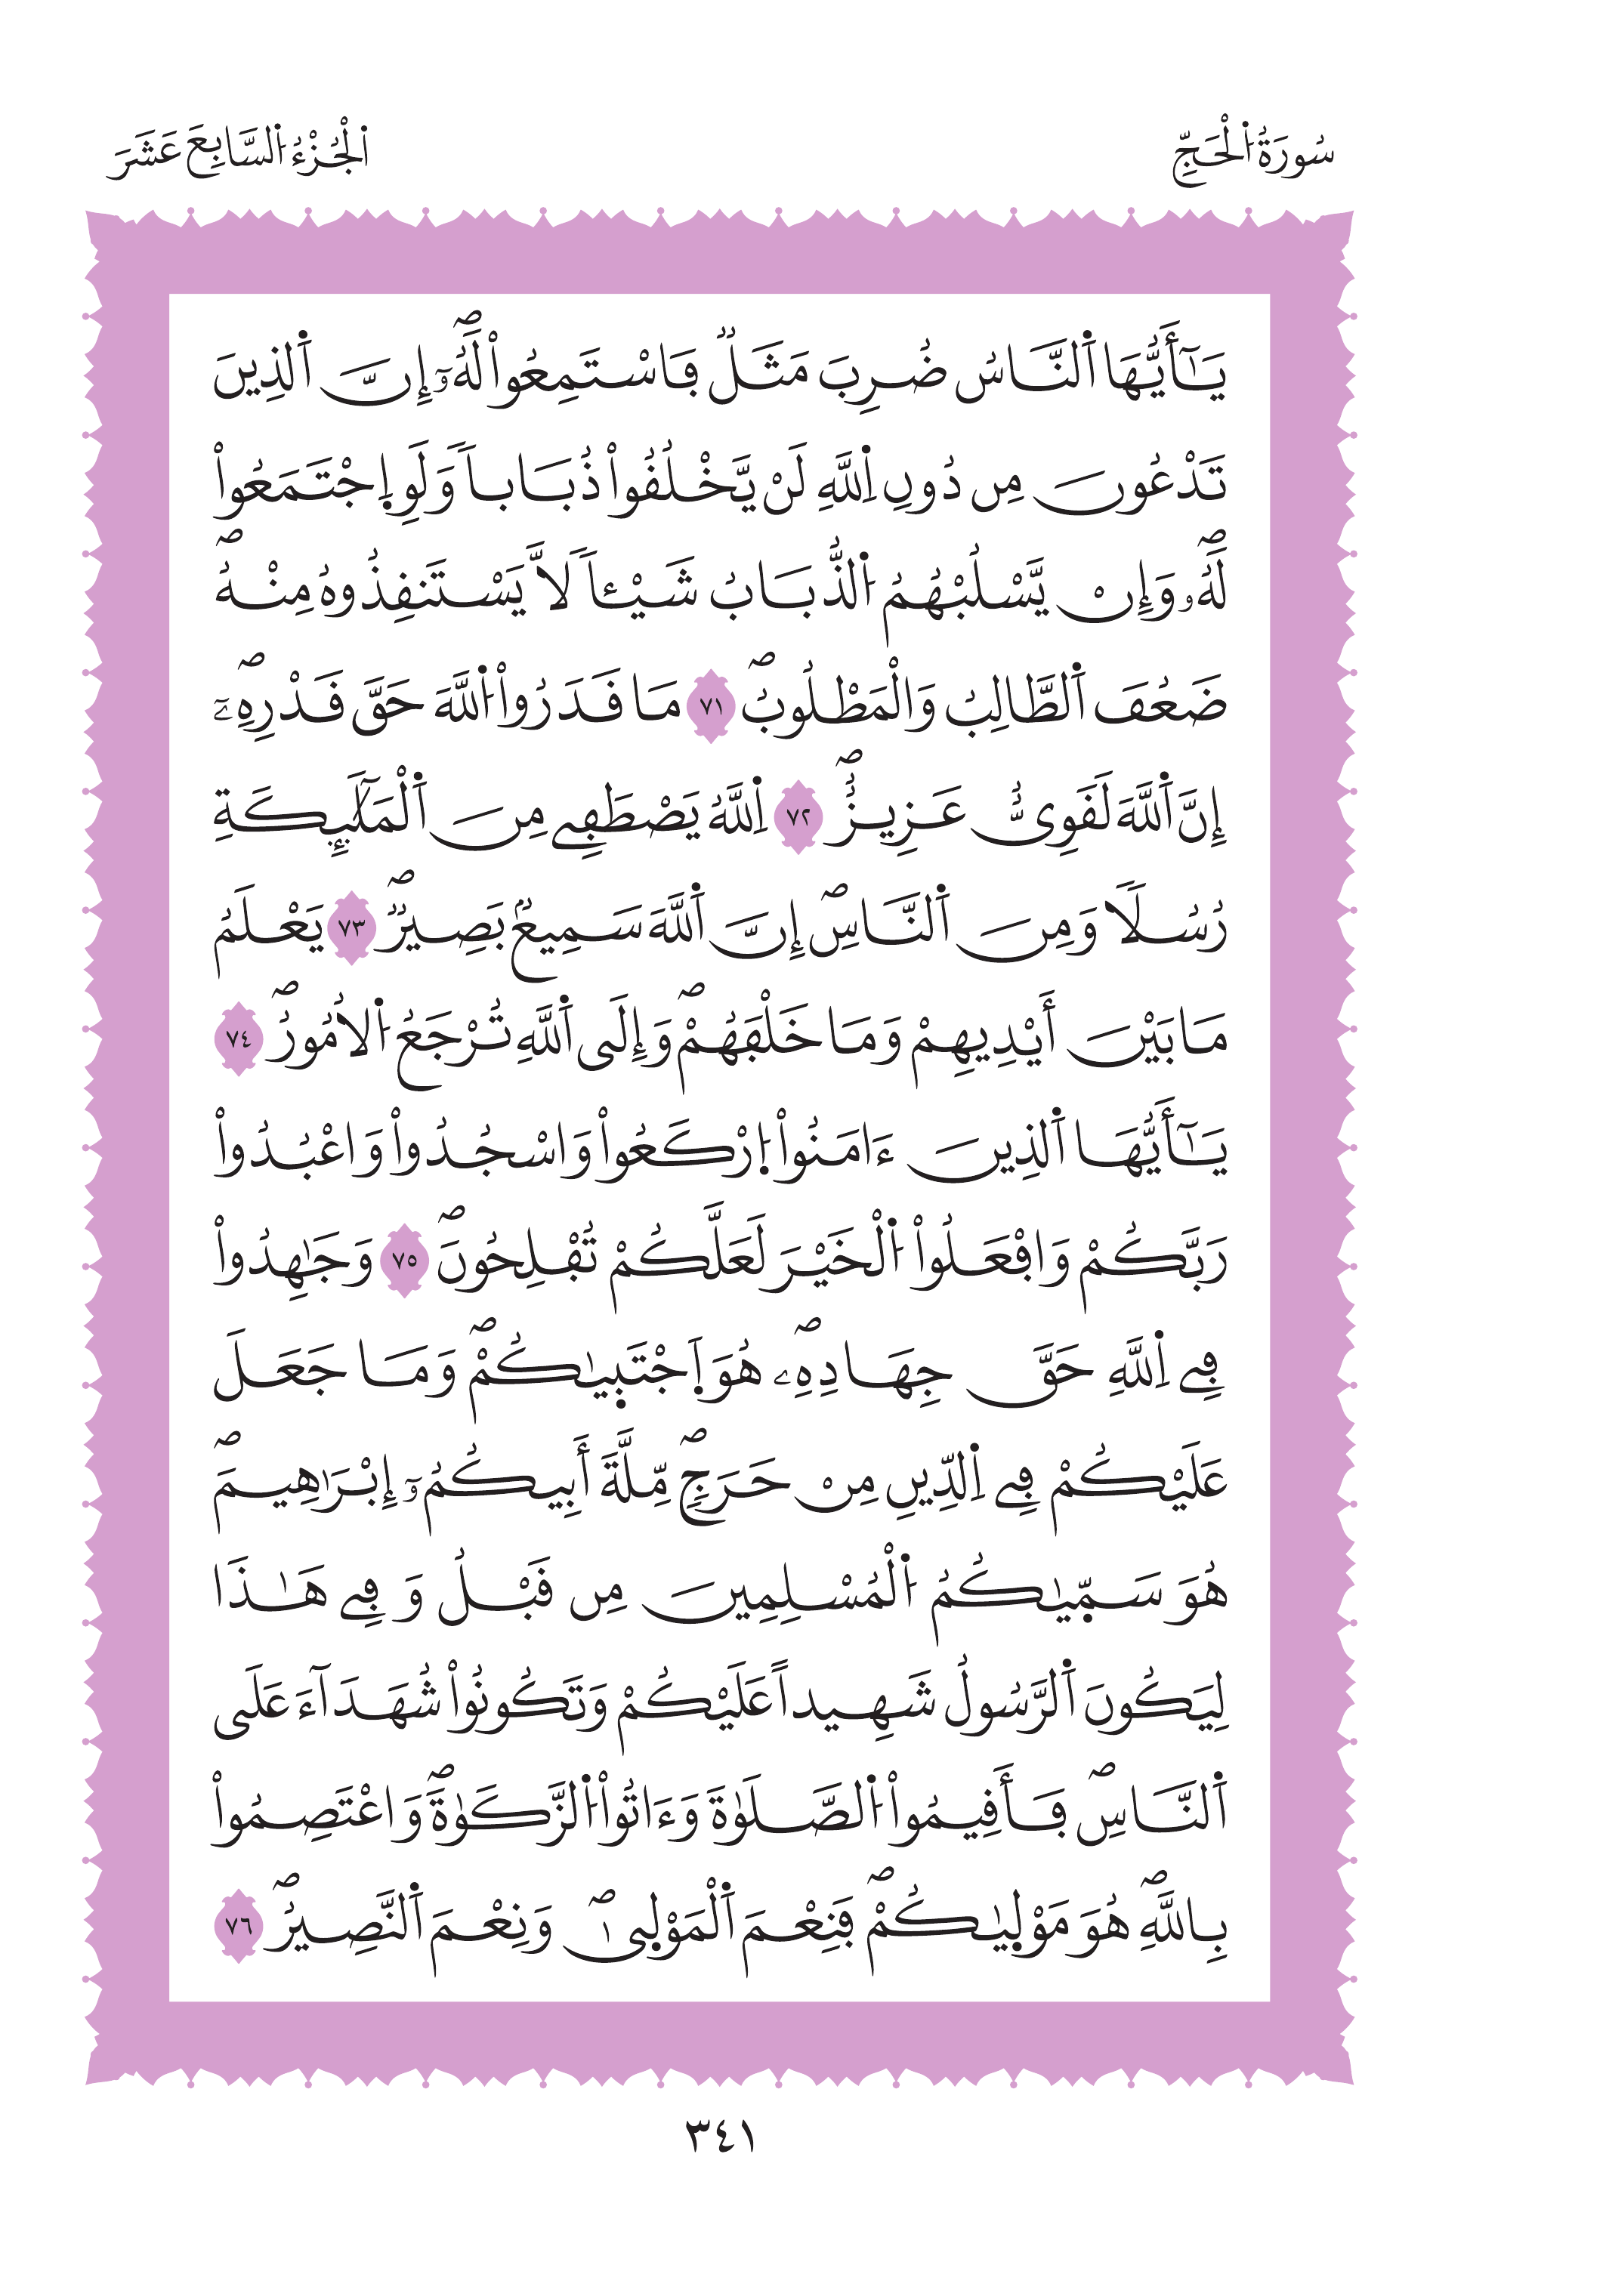 سُورَةُ اُ۬لْحَجِّ
اَ۬لْجُزْءُ اُ۬لسَّابِعَ عَشَرَ
يَٰٓأَيُّهَا اَ۬لنَّاسُ ضُرِبَ مَثَلٞ فَاسْتَمِعُواْ لَهُۥٓۖ إِنَّ اَ۬لذِينَ
تَدْعُونَ مِن دُونِ اِ۬للَّهِ لَنْ يَّخْلُقُواْ ذُبَاباٗ وَلَوِ اِ۪جْتَمَعُواْ
لَهُۥۖ وَإِنْ يَّسْلُبْهُمُ اُ۬لذُّبَابُ شَيْـٔاٗ لَّا يَسْتَنقِذُوهُ مِنْهُۖ
ضَعُفَ اَ۬لطَّالِبُ وَالْمَطْلُوبُۖ ٧١ مَا قَدَرُواْ اُ۬للَّهَ حَقَّ قَدْرِهِۦٓۖ
إِنَّ اَ۬للَّهَ لَقَوِيٌّ عَزِيزٌۖ ٧٢ اِ۬للَّهُ يَصْطَفِے مِنَ اَ۬لْمَلَٰٓئِكَةِ
رُسُلاٗ وَمِنَ اَ۬لنَّاسِۖ إِنَّ اَ۬للَّهَ سَمِيعُۢ بَصِيرٞۖ ٧٣ يَعْلَمُ
مَا بَيْنَ أَيْدِيهِمْ وَمَا خَلْفَهُمْۖ وَإِلَى اَ۬للَّهِ تُرْجَعُ اُ۬لْأُمُورُۖ ٧٤
يَٰٓأَيُّهَا اَ۬لذِينَ ءَامَنُواْ اُ۪رْكَعُواْ وَاسْجُدُواْ وَاعْبُدُواْ
رَبَّكُمْ وَافْعَلُواْ اُ۬لْخَيْرَ لَعَلَّكُمْ تُفْلِحُونَۖ ٧٥ وَجَٰهِدُواْ
فِے اِ۬للَّهِ حَقَّ جِهَادِهِۦ هُوَ اَ۪جْتَب۪يٰكُمْۖ وَمَا جَعَلَ
عَلَيْكُمْ فِے اِ۬لدِّينِ مِنْ حَرَجٖۖ مِّلَّةَ أَبِيكُمُۥٓ إِبْرَٰهِيمَۖ
هُوَ سَمّ۪يٰكُمُ اُ۬لْمُسْلِمِينَ مِن قَبْلُ وَفِے هَٰذَا
لِيَكُونَ اَ۬لرَّسُولُ شَهِيداً عَلَيْكُمْ وَتَكُونُواْ شُهَدَآءَ عَلَى
اَ۬لنَّاسِۖ فَأَقِيمُواْ اُ۬لصَّلَوٰةَ وَءَاتُواْ اُ۬لزَّكَوٰةَۖ وَاعْتَصِمُواْ
بِاللَّهِۖ هُوَ مَوْل۪يٰكُمْۖ فَنِعْمَ اَ۬لْمَوْل۪يٰۖ وَنِعْمَ اَ۬لنَّصِيرُۖ ٧٦
٣٤١